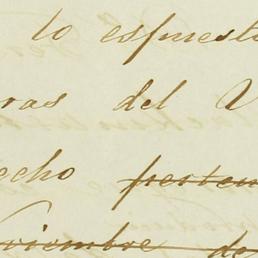 lo espuesto
ras del V
echo perten
viembre de